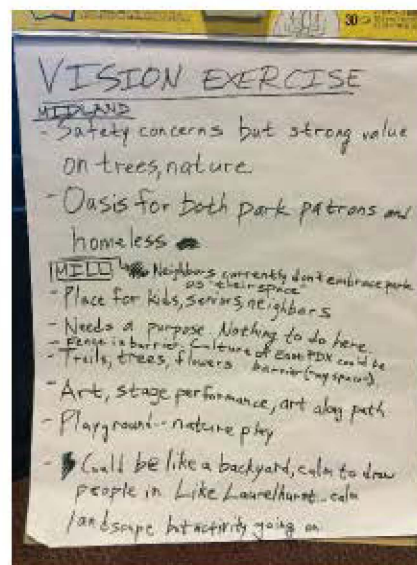 30
VISION EXERCISE
MIDLAND
- Safety concerns but strong value
on trees, nature
- Oasis for both park patrons and
homeless
MILL Neighbors currently don't embrace park
as "their space"
- Place for kids, seniors, neighbors
- Needs a purpose. Nothing to do here.
- Fence is barrier. Culture of East PDX could be
barrier (my space).
- Trails, trees, flowers
- Art, stage performance, art along path
- Playground - nature play
- Could be like a backyard, calm to draw
people in. Like Laurelhurst - calm
landscape but activity going on